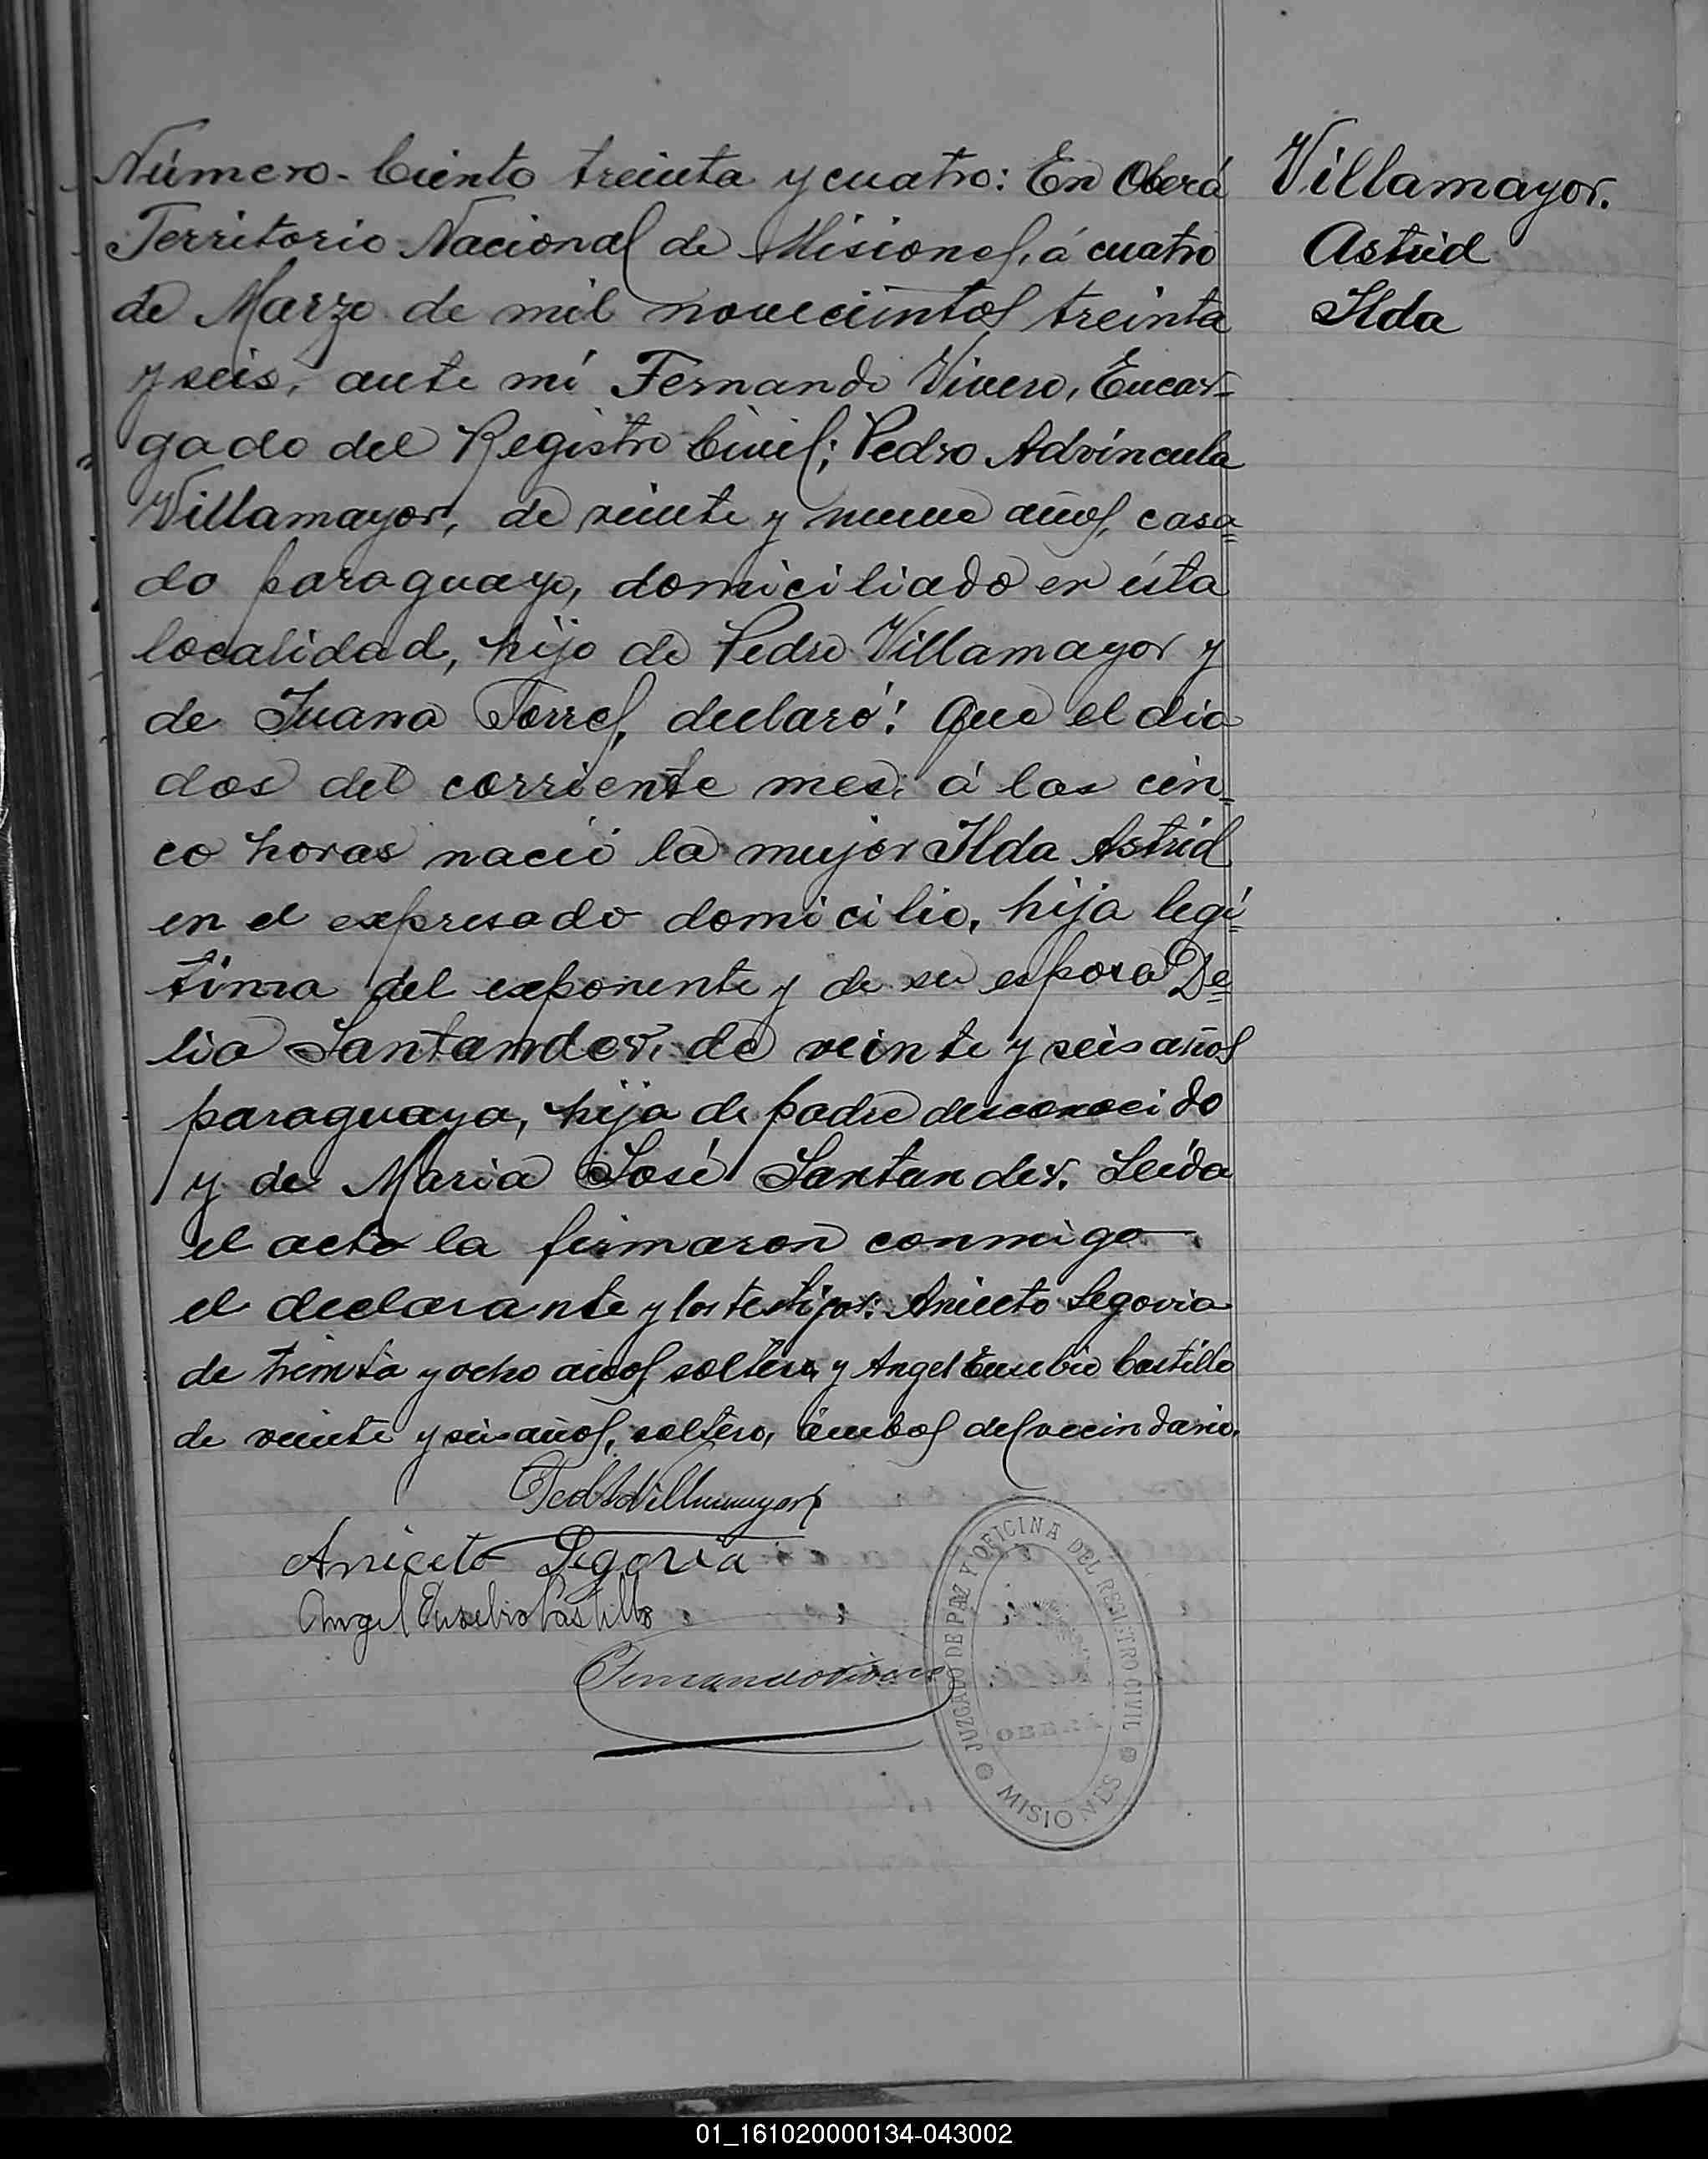 Número Ciento treinta y cuatro: En Oberá
Territorio Nacional de Misiones, á cuatro
de Marzo de mil novecientos treinta
y seis, ante mí Fernando Vivero, Encar=
gado del Registro Civil; Pedro Advíncula
Villamayor, de veinte y nueve años, casa=
do paraguayo, domiciliado en ésta
localidad, hijo de Pedro Villamayor y
de Juana Torres, declaró: Que el dia
dos del corriente mes, á las cin=
co horas nació la mujer Ilda Astrid
en el expresado domicilio, hija legí=
tima del exponente y de su esposa De=
lia Santander, de veinte y seis años
paraguaya, hija de padre desconocido
y de Maria José Santander. Leída
el acta la firmaron conmigo
el declarante y los testigos: Aniceto Segovia
de treinta y ocho años soltero y Angel Eusebio Castillo
de veinte y seis años, soltero, ámbos del vecindario.
Villamayor.
Astrid
Ilda
Villamayor
Aniceto Segovia
Angel Eusebio Castillo
Fernando Vivero
JUZGADO DE PAZ Y OFICINA DEL REGISTRO CIVIL
OBERÁ
MISIONES
01_161020000134-043002